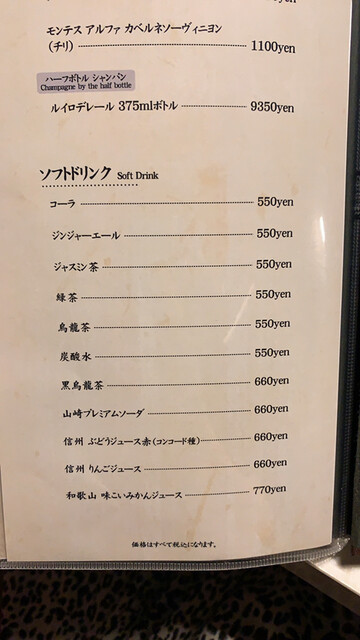 モンテス アルファ カベルネソーヴィニヨン
(チリ) 1100yen
ハーフボトル シャンパン
Champagne by the half bottle
ルイロデレール 375mlボトル 9350yen
ソフトドリンク Soft Drink
コーラ 550yen
ジンジャーエール 550yen
ジャスミン茶 550yen
緑茶 550yen
烏龍茶 550yen
炭酸水 550yen
黒烏龍茶 660yen
山崎プレミアムソーダ 660yen
信州 ぶどうジュース赤(コンコード種) 660yen
信州 りんごジュース 660yen
和歌山 味こいみかんジュース 770yen
価格はすべて税込になります。